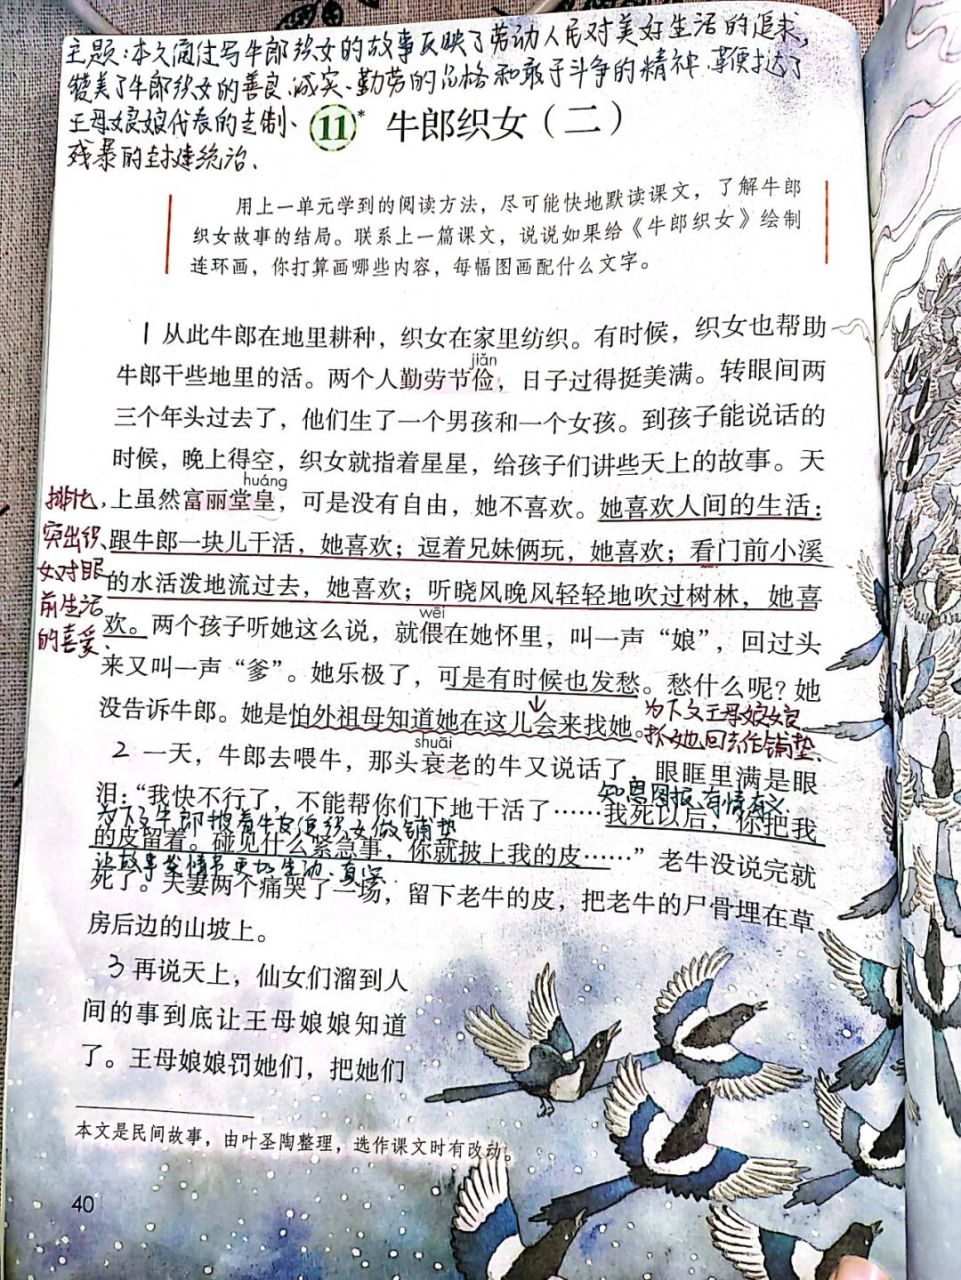 主题:本文通过写牛郎织女的故事反映了劳动人民对美好生活的追求,
赞美了牛郎织女的善良、诚实、勤劳的品格和敢于斗争的精神、鞭挞了
王母娘娘代表的专制、
残暴的封建统治、
11* 牛郎织女（二）
用上一单元学到的阅读方法，尽可能快地默读课文，了解牛郎
织女故事的结局。联系上一篇课文，说说如果给《牛郎织女》绘制
连环画，你打算画哪些内容，每幅图画配什么文字。
1 从此牛郎在地里耕种，织女在家里纺织。有时候，织女也帮助
jiǎn
牛郎干些地里的活。两个人勤劳节俭，日子过得挺美满。转眼间两
三个年头过去了，他们生了一个男孩和一个女孩。到孩子能说话的
时候，晚上得空，织女就指着星星，给孩子们讲些天上的故事。天
huáng
上虽然富丽堂皇，可是没有自由，她不喜欢。她喜欢人间的生活：
跟牛郎一块儿干活，她喜欢；逗着兄妹俩玩，她喜欢；看门前小溪
的水活泼地流过去，她喜欢；听晓风晚风轻轻地吹过树林，她喜
wēi
欢。两个孩子听她这么说，就偎在她怀里，叫一声“娘”，回过头
来又叫一声“爹”。她乐极了，可是有时候也发愁。愁什么呢？她
没告诉牛郎。她是怕外祖母知道她在这儿会来找她。
排比,
突出织
女对眼
前生活
的喜爱、
为下文王母娘娘
抓她回去作铺垫、
shuāi
2 一天，牛郎去喂牛，那头衰老的牛又说话了，眼眶里满是眼
知恩图报、有情有义
泪：“我快不行了，不能帮你们下地干活了……我死以后，你把我
为下文牛郎披着牛皮追织女做铺垫
的皮留着。碰见什么紧急事，你就披上我的皮……”老牛没说完就
让故事发情节更加生动、真实、
死了。夫妻两个痛哭了一场，留下老牛的皮，把老牛的尸骨埋在草
房后边的山坡上。
3 再说天上，仙女们溜到人
间的事到底让王母娘娘知道
了。王母娘娘罚她们，把她们
本文是民间故事，由叶圣陶整理，选作课文时有改动。
40